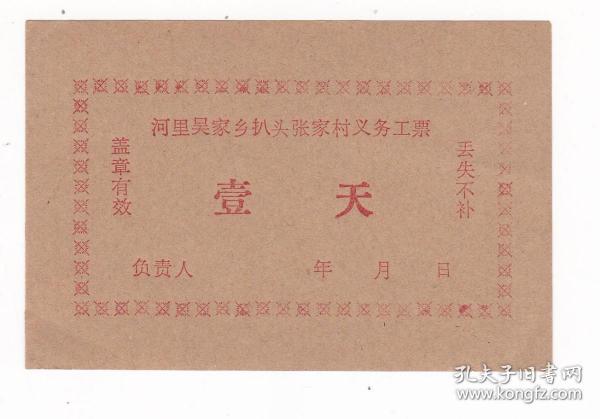 河里吴家乡扒头张家村义务工票
盖章有效
壹天
丢失不补
负责人 年 月 日
孔夫子旧书网
www.kongfz.com